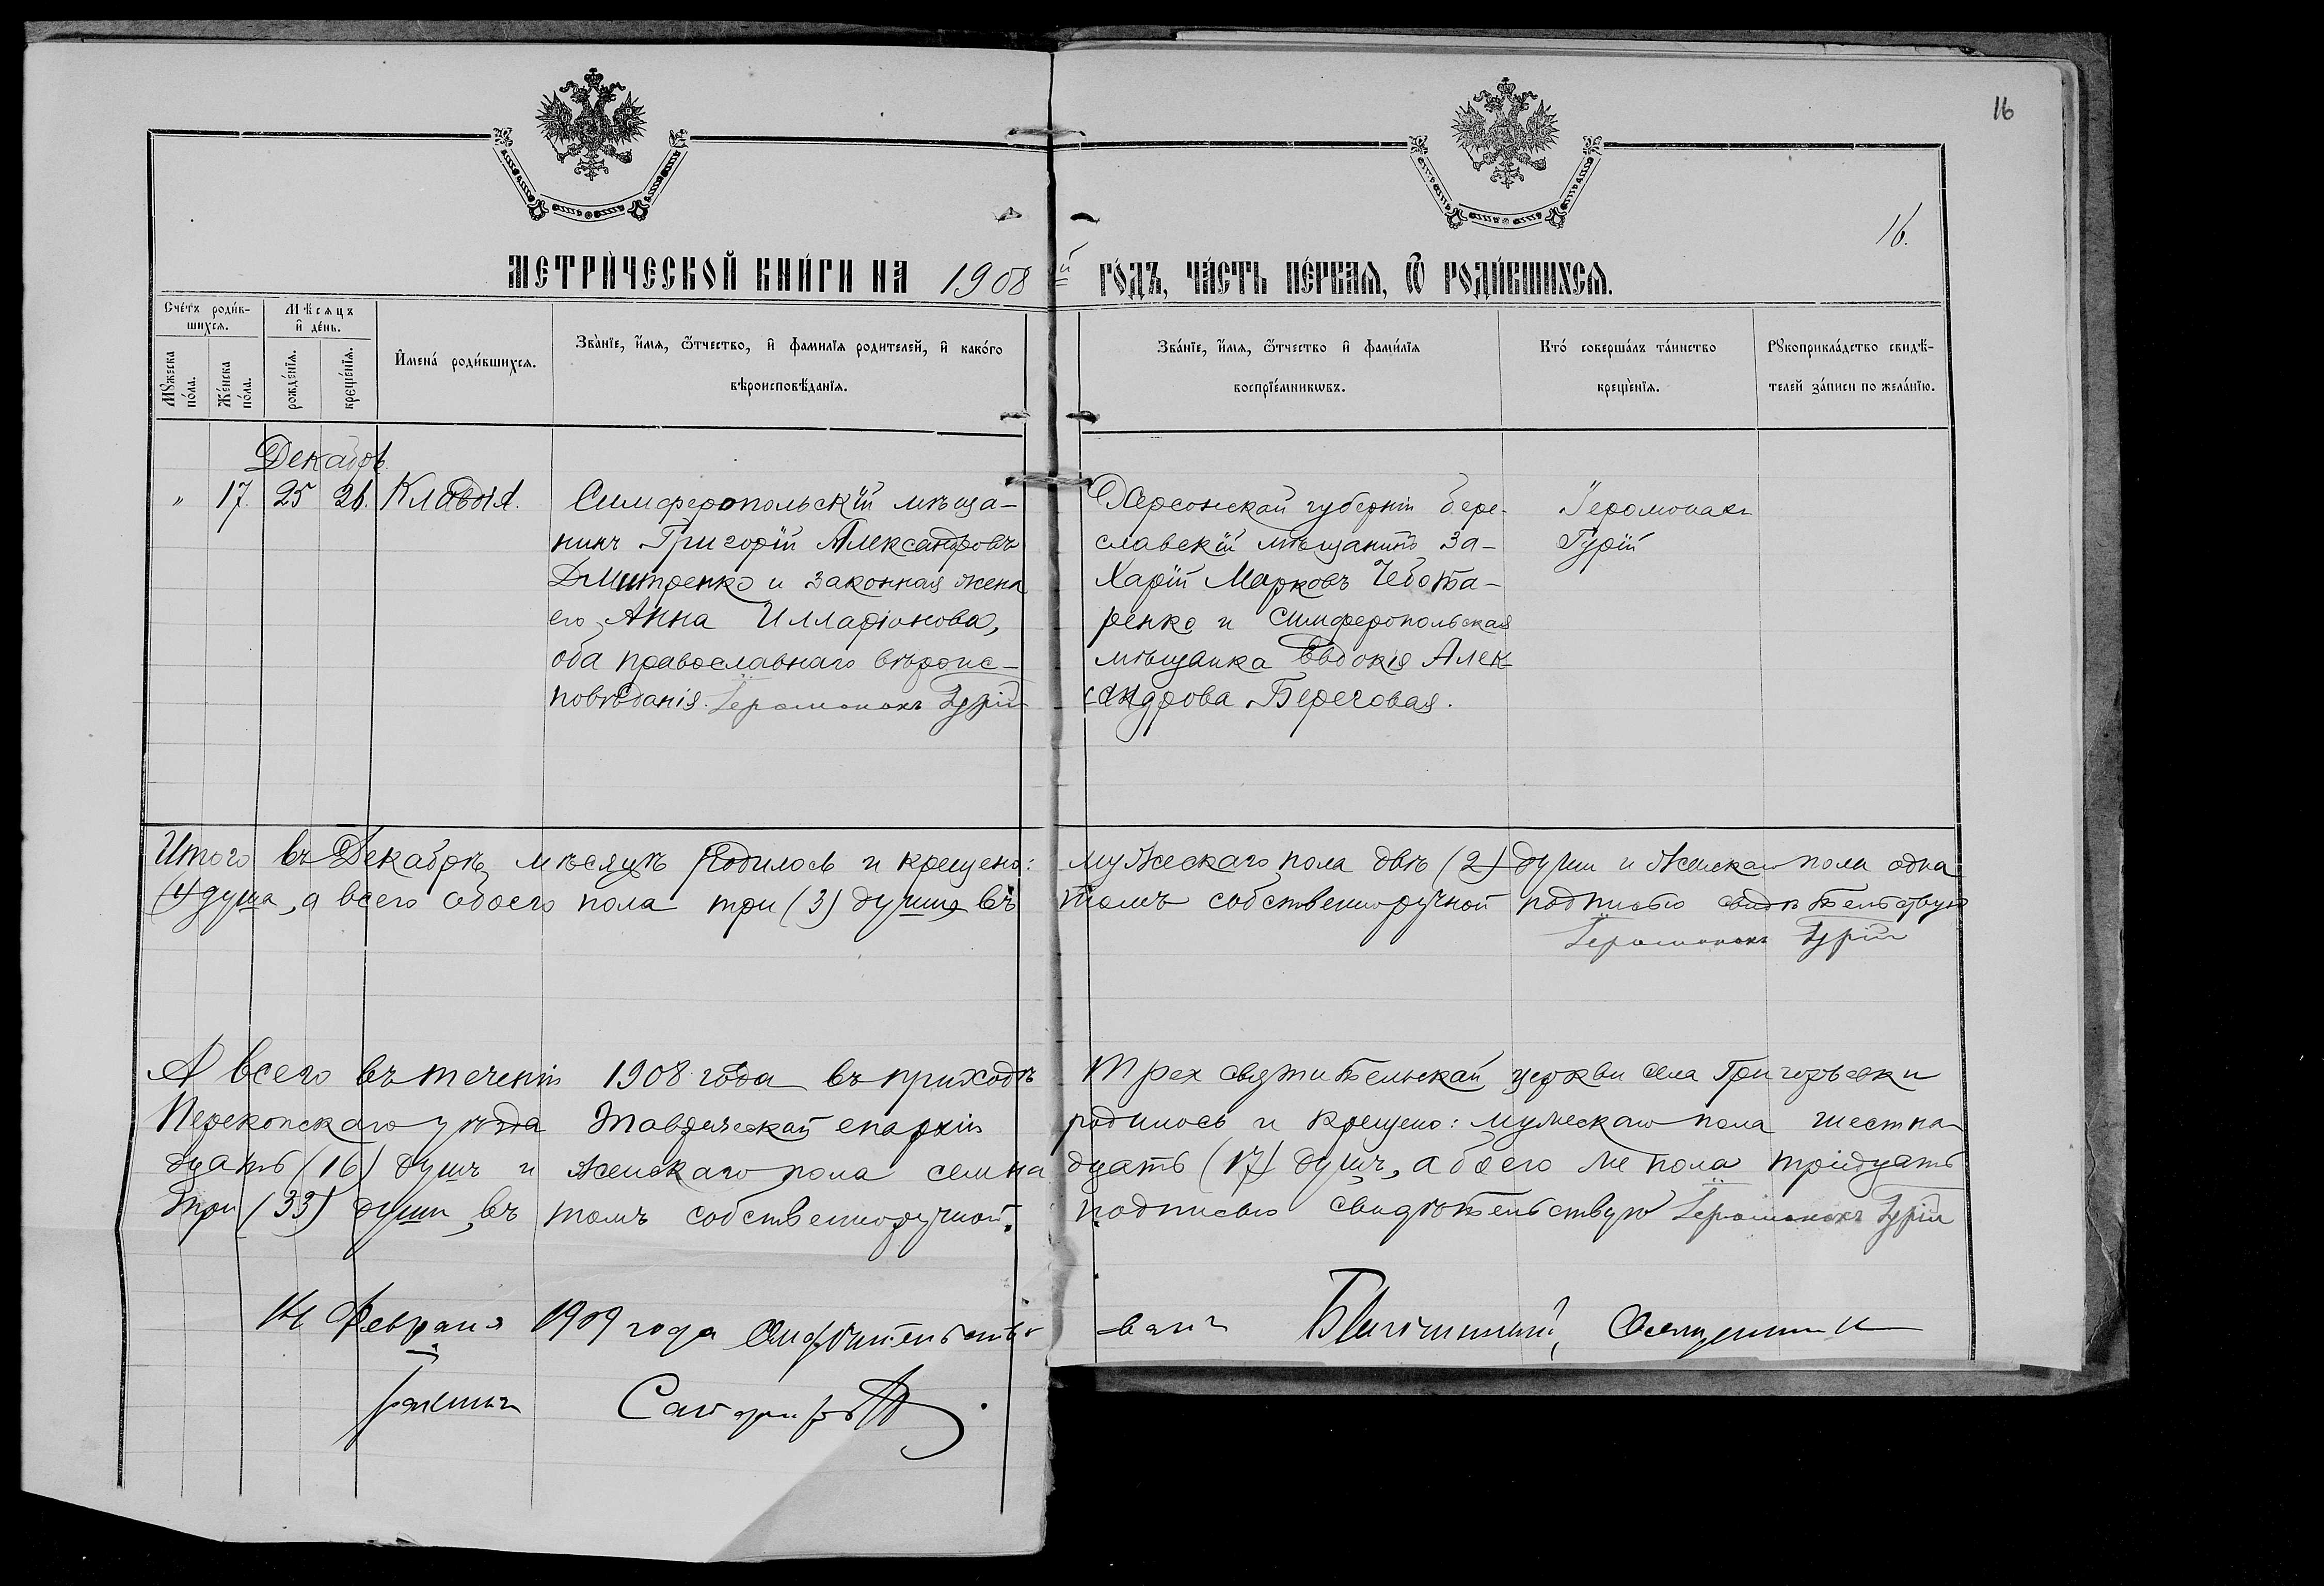 16
16.
МЕТРИ́ЧЕСКОЙ КНИ́ГИ НА 1908й ГО́ДЪ, ЧА́СТЬ ПЕ́РВАЯ, Ѿ РОДИ́ВШИХСЯ.
Сче́тъ роди́вшихся.
Мѣсяцъ и де́нь.
Мꙋжеска по́ла.
Же́нска по́ла.
рожде́нїѧ.
креще́нїѧ.
Имена́ роди́вшихсѧ.
Зва́нїе, и́мѧ, ѻ́тчество, и фамилїѧ родителей, и како́го
вѣроисповѣданїѧ.
Зва́нїе, и́мѧ, ѻ́тчество и фами́лїѧ
воспрїе́мникѡвъ.
Кто́ соверша́лъ та́инство
креще́нїѧ.
Рꙋкоприкла́дство свидѣ-
телей за́писи по жела́нїю.
Декабрь
" 17. 25 26. Клавдія.
Симферопольскій мѣща-
нинъ Григорій Александровъ
Дмитренко и законная жена
его Анна Илларіонова,
оба православнаго вѣроис-
повѣданія. Іеромонахъ Гурій
Херсонской губерніи бере-
славскій мѣщанинъ За-
харій Марковъ Чебота-
ренко и Симферопольская
мѣщанка Евдокія Алек-
сандрова Береговая.
Іеромонахъ
Гурій
Итого въ Декабрѣ мѣсяцѣ родилось и крещено: мужескаго пола двѣ (2) души и женскаго пола одна
(1) душа, а всего обоего пола три (3) души въ томъ собственноручной подписью свидѣтельствую
Іеромонахъ Гурій
А всего въ теченіи 1908 года въ приходѣ Трехсвятительской церкви села Григорьевки
Перекопскаго уѣзда Таврической епархіи родилось и крещено: мужескаго пола шестна-
дцать (16) душъ и женскаго пола семна дцать (17) душъ, а обоего же пола тридцать
три (33) души, въ томъ собственноручной подписью свидѣтельствую Іеромонахъ Гурій
Февраля 1909 года свидѣтельство-
валъ Благочинный, Священникъ